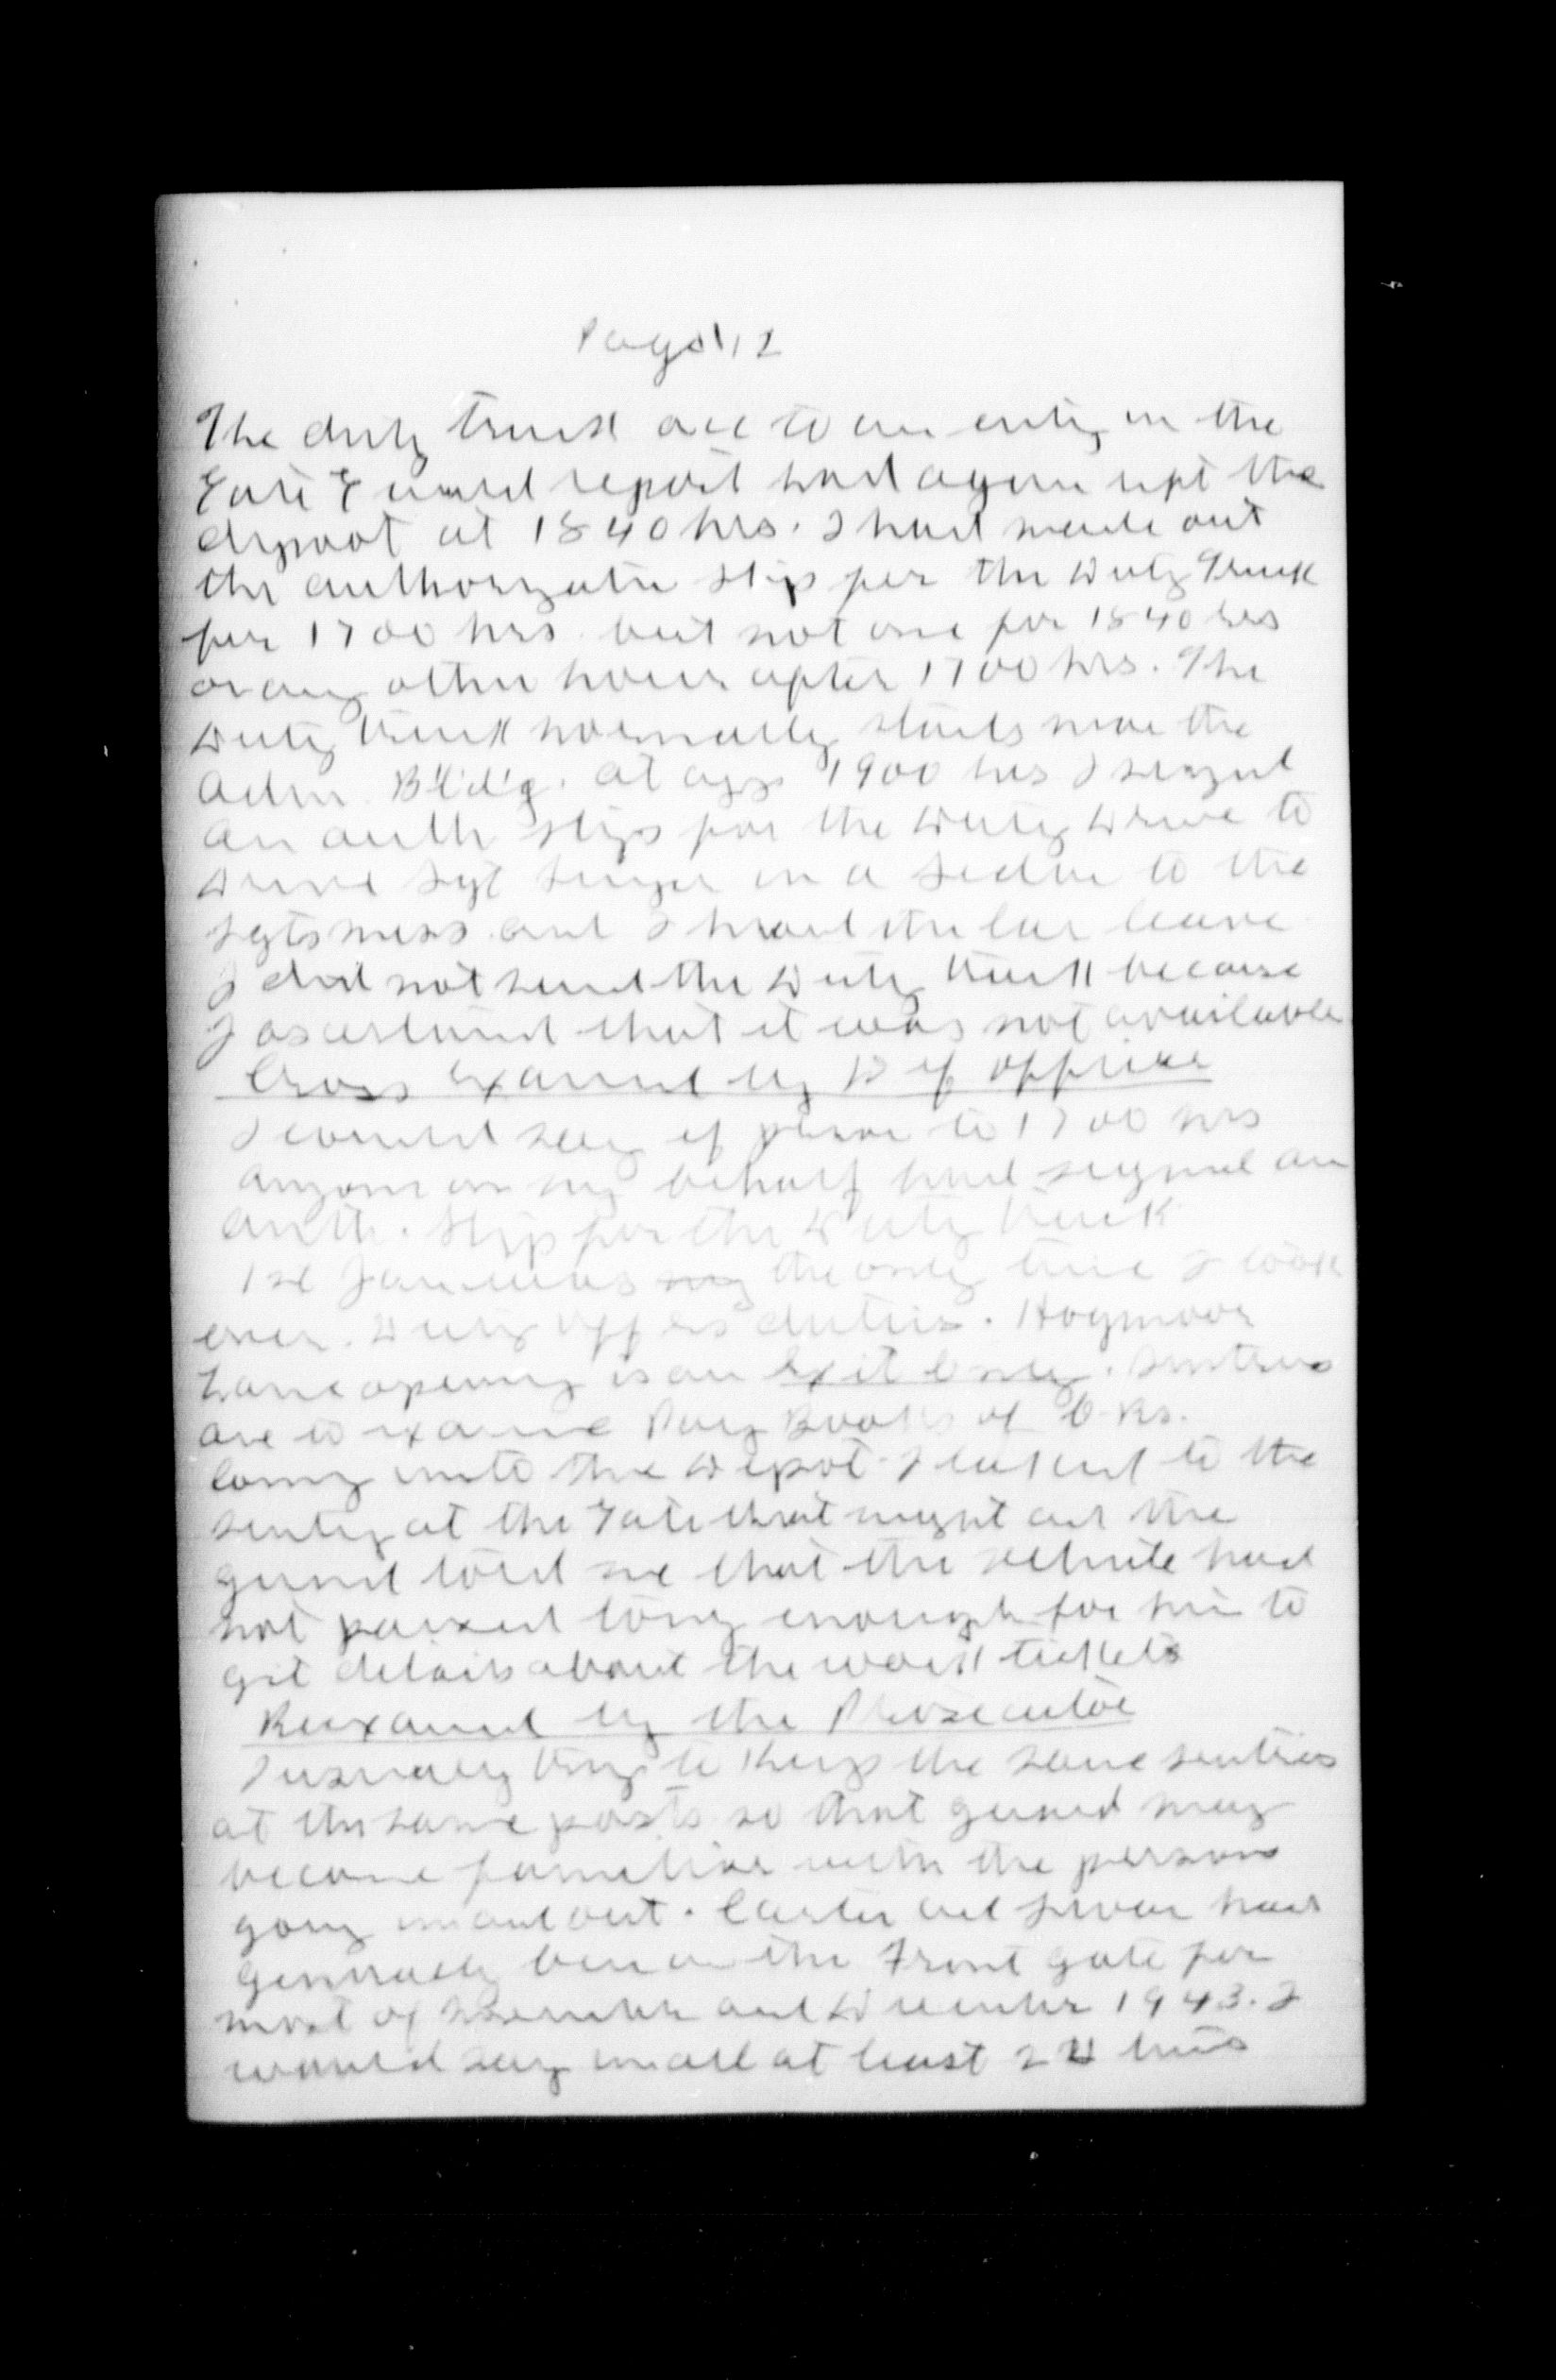 Page 12
The duty truck acc to an entry in the
Gate Guard report had again left the
depoot at 1840 hrs. I had made out
the authorzation slip for the Duty Truck
for 1700 hrs but not one for 1840 hrs
or any other hour after 1700 hrs. The
Duty truck normally stands near the
Adm. Bldg. At app 1900 hrs I signed
an auth slip for the Duty Driver to
Drive Sgt in a Sedan to the
Sgts mess and I heard the car leave
I did not send the Duty truck because
I ascertained that it was not available
Cross examined by Def officer
I could say if prior to 1700 hrs
anyone on my behalf had signed an
auth. slip for the Duty truck
1st Jan was the only time I took
over Duty Offrs duties. Hogmoor
Lane opening is an Exit Only. Sentries
are to examine Pay Books of O.Rs.
coming into the Depot. I talked to the
sentry at the Gate that night and the
guard told me that the vehicle had
not paused long enough for him to
get details about the work tickets
Reexamined by the Prosecutor
I usually try to keep the same sentries
at the same posts so that guard may
become familiar with the persons
going in and out. Carter and had
generally been on the Front gate for
most of November and December 1943. I
would say in all at least 24 times